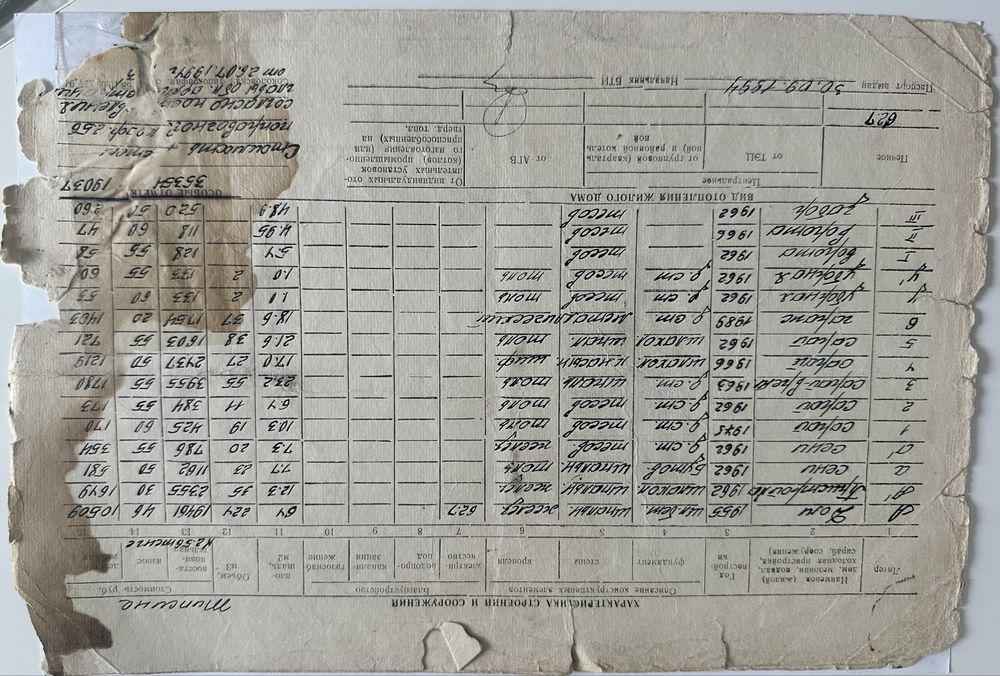 Типсина
ХАРАКТЕРИСТИКА СТРОЕНИЙ И СООРУЖЕНИЙ
Литер
Наименов. (жилой) дом, мезонин, подвал, холодная пристройка, сарай, сооружения)
Год построй ки
Описание конструктивных элементов
фундамент
стены
кровли
Благоустройство
электри- чество
водопро- вод
канали- зация
газоснаб жение
пло- щадь, м2
Объем, м3
Стоимость руб.
восста- нови- тельная
износ
1 2 3 4 5 6 7 8 9 10 11 12 13 14 15
А Дом 1955 шл.бет. шпальн железн 62.7 64 224 19461 46 10509
А1 Пристройка 1962 шлакол шпальн железн 12.3 35 2355 30 1649
а сени 1962 Бутов. шпальн толь 7.7 23 1162 50 581
а1 сени 1962 д. ст. тесов железн 7.3 20 786 55 354
1 сарай 1975 д. ст. тесов толь 10.3 19 425 60 170
2 сарай 1962 д. ст. тесов толь 6.4 11 384 55 173
3 1963 д. ст. шпальн толь 23.2 55 3955 55 1780
4 сарай 1966 шлакол шиф 17.0 27 2437 50 1219
5 сарай 1962 шлакол шпал. толь 21.6 38 1603 55 721
6 гараж 1989 д ст. металлический 18.6 37 1754 20 1403
У уборная 1962 д. ст. тесов толь 1.0 2 133 60 53
У1 уборная 1962 д. ст тесов толь 1.0 2 133 55 60
I ворота 1962 тесов 5.4 128 55 58
II ворота 1966 тесов 4.95 118 60 47
III забор 1962 тесов 48.9 520 50 260
35354 19037
ВИД ОТОПЛЕНИЯ ЖИЛОГО ДОМА
ОСОБЫЕ ОТМЕТК
Печное
Центральное
от ТЭЦ
от групповой (кварталь ной) и районной котель ной
от АГВ
От индивидуальных ото- пительных установок (котлов) промышленно- го изготовления (или приспособленных на) тверд. топл.
62.7
Стоимость
поправочной коэф. 256
согласно пост.
главы обл.
от 26.07.1994г.
Паспорт выдан 30.09.1994
Начальник БТИ